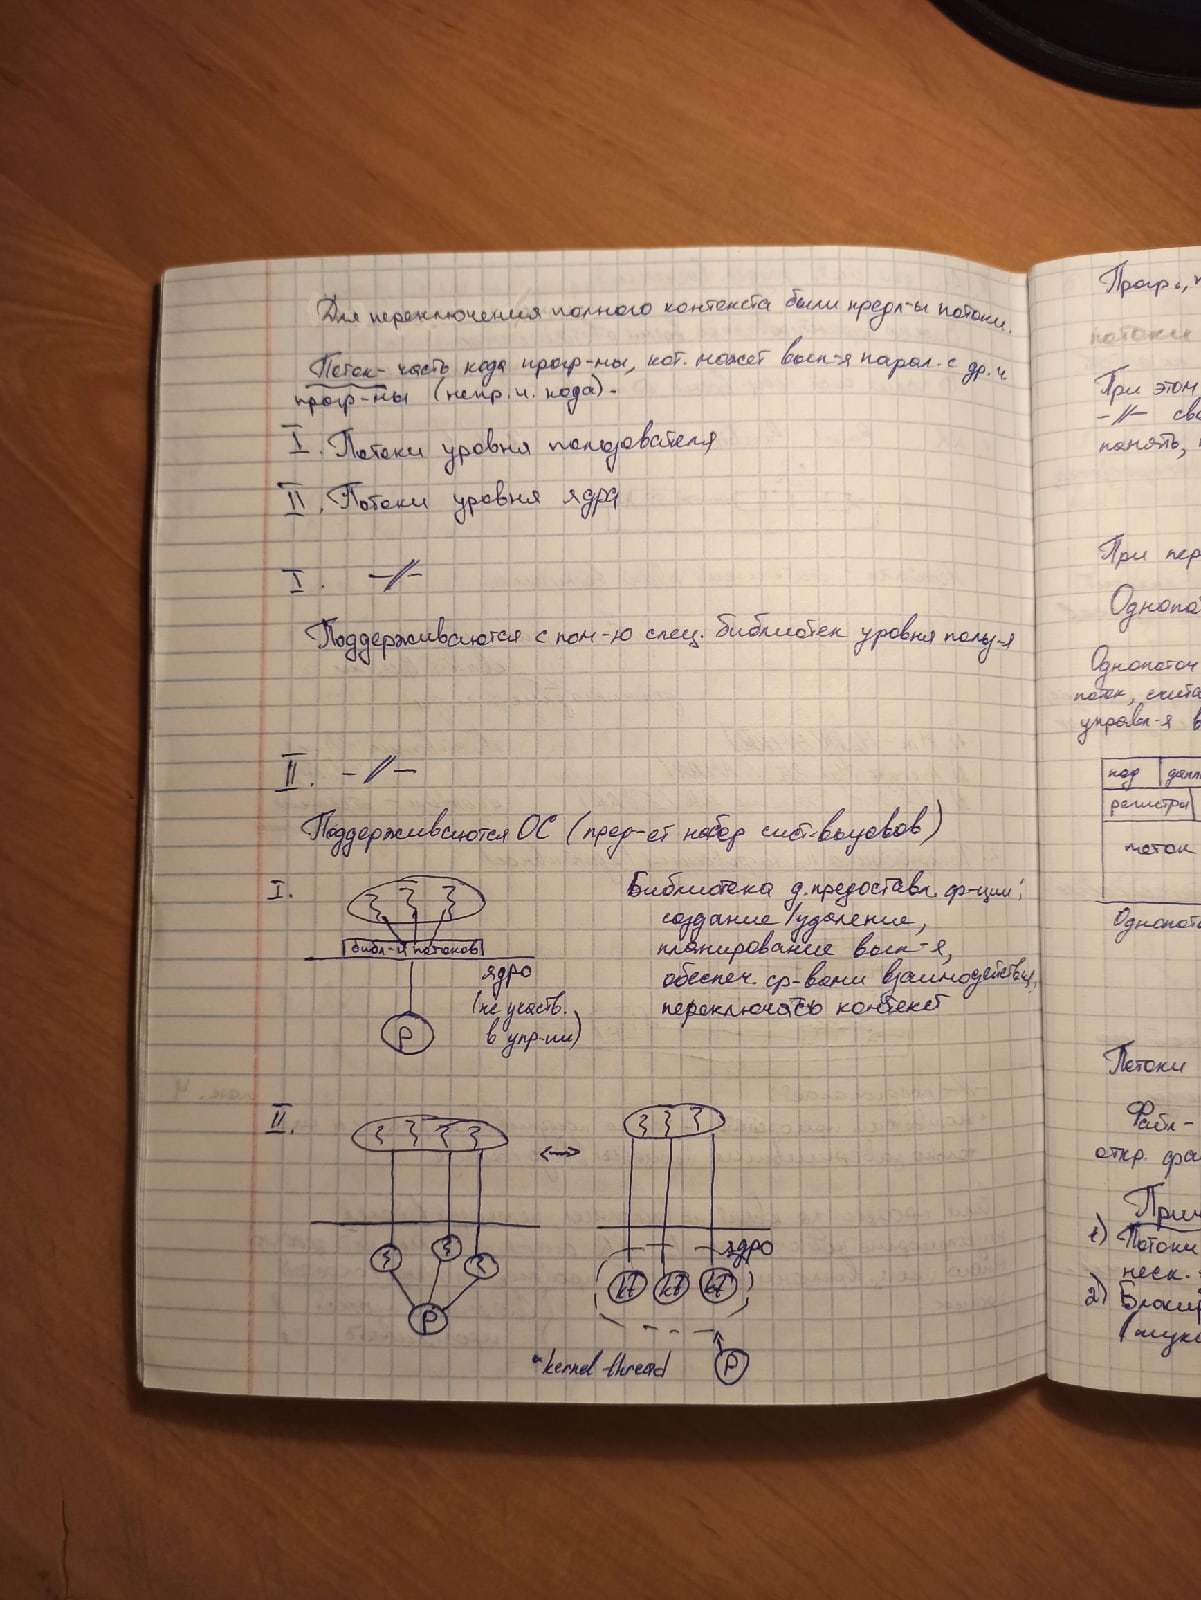 Для переключения полного контекста были предл-ы потоки.
Поток - часть кода прогр-мы, кот. может вып-я парал. с др. ч.
прогр-мы (непр. ч. кода).
I. Потоки уровня пользователя
II. Потоки уровня ядра
I. -//-
Поддерживаются с пом-ю спец. библиотек уровня польз-я
II. -//-
Поддерживаются ОС (пред-ет набор сист. вызовов)
I.
библ-й потоков
ядро
(не участв.
в упр-нии)
P
Библиотека д. предоставл. ф-ции:
создание/удаление,
планирование вып-я,
обеспеч. ср-вами взаимодействия,
переключать контекст
II.
P
ядро
kt kt kt
*kernel thread
P
Прогр.,
потоки
При этом
-//- сво
память,
При пер
Однопото
Однопоточ
поток, счита
управл-я в
код данн
регистры
поток
Однопото
Потоки
Файл-
откр. фай
Прич
1) Потоки
неск.
2) Блокир